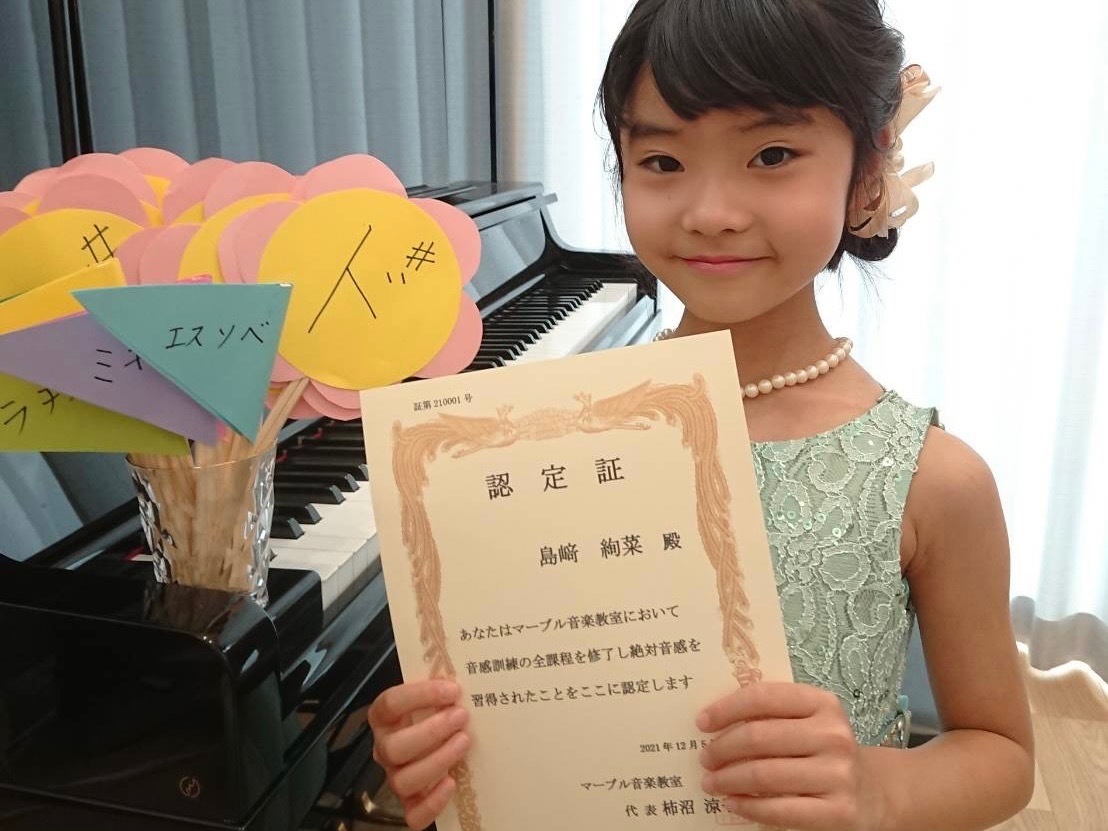 サ#
イ゛#
エスソベ
ミ
ラ
証第210001号
認定証
島﨑 絢菜 殿
あなたはマーブル音楽教室において
音感訓練の全課程を修了し絶対音感を
習得されたことをここに認定します
2021年12月5
マーブル音楽教室
代表 柿沼 涼